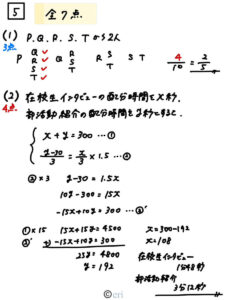 5 全7点
(1) P.Q.R.S.Tから2人
3点
P Q ✓ Q R R S S T
R ✓ S T
S ✓ T
T ✓
4/10 = 2/5
(2) 在校生インタビューの配分時間をx秒、
4点 部活動紹介の配分時間をy秒とすると、
x + y = 300 …①
(y-30)/3 = x/3 × 1.5 …②
②×3 y-30 = 1.5x
10y-300 = 15x
-15x+10y = 300 …②'
①×15 15x+15y = 4500
②' +) -15x+10y = 300
25y = 4800
y = 192
x = 300-192
x = 108
在校生インタビュー
1分48秒
部活動紹介
3分12秒
©eri